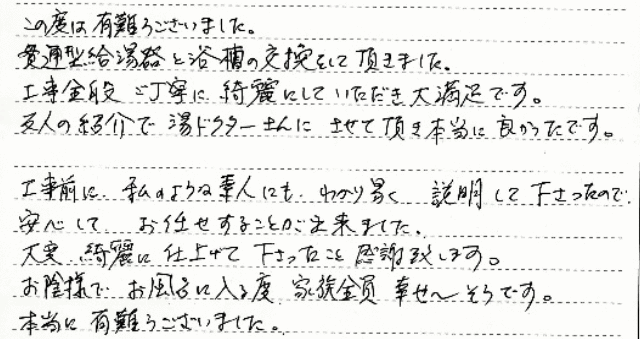 この度は有難うございました。
貫通型給湯器と浴槽の交換をして頂きました。
工事全般 ご丁寧に 綺麗にしていただき大満足です。
友人の紹介で 湯ドクターさんに させて頂き本当に良かったです。
工事前に 私のような素人にも わかり易く 説明して下さったので
安心して お任せすることが出来ました。
大変 綺麗に仕上げて下さったこと感謝致します。
お陰様で お風呂に入る度 家族全員 幸せ〜そうです。
本当に有難うございました。